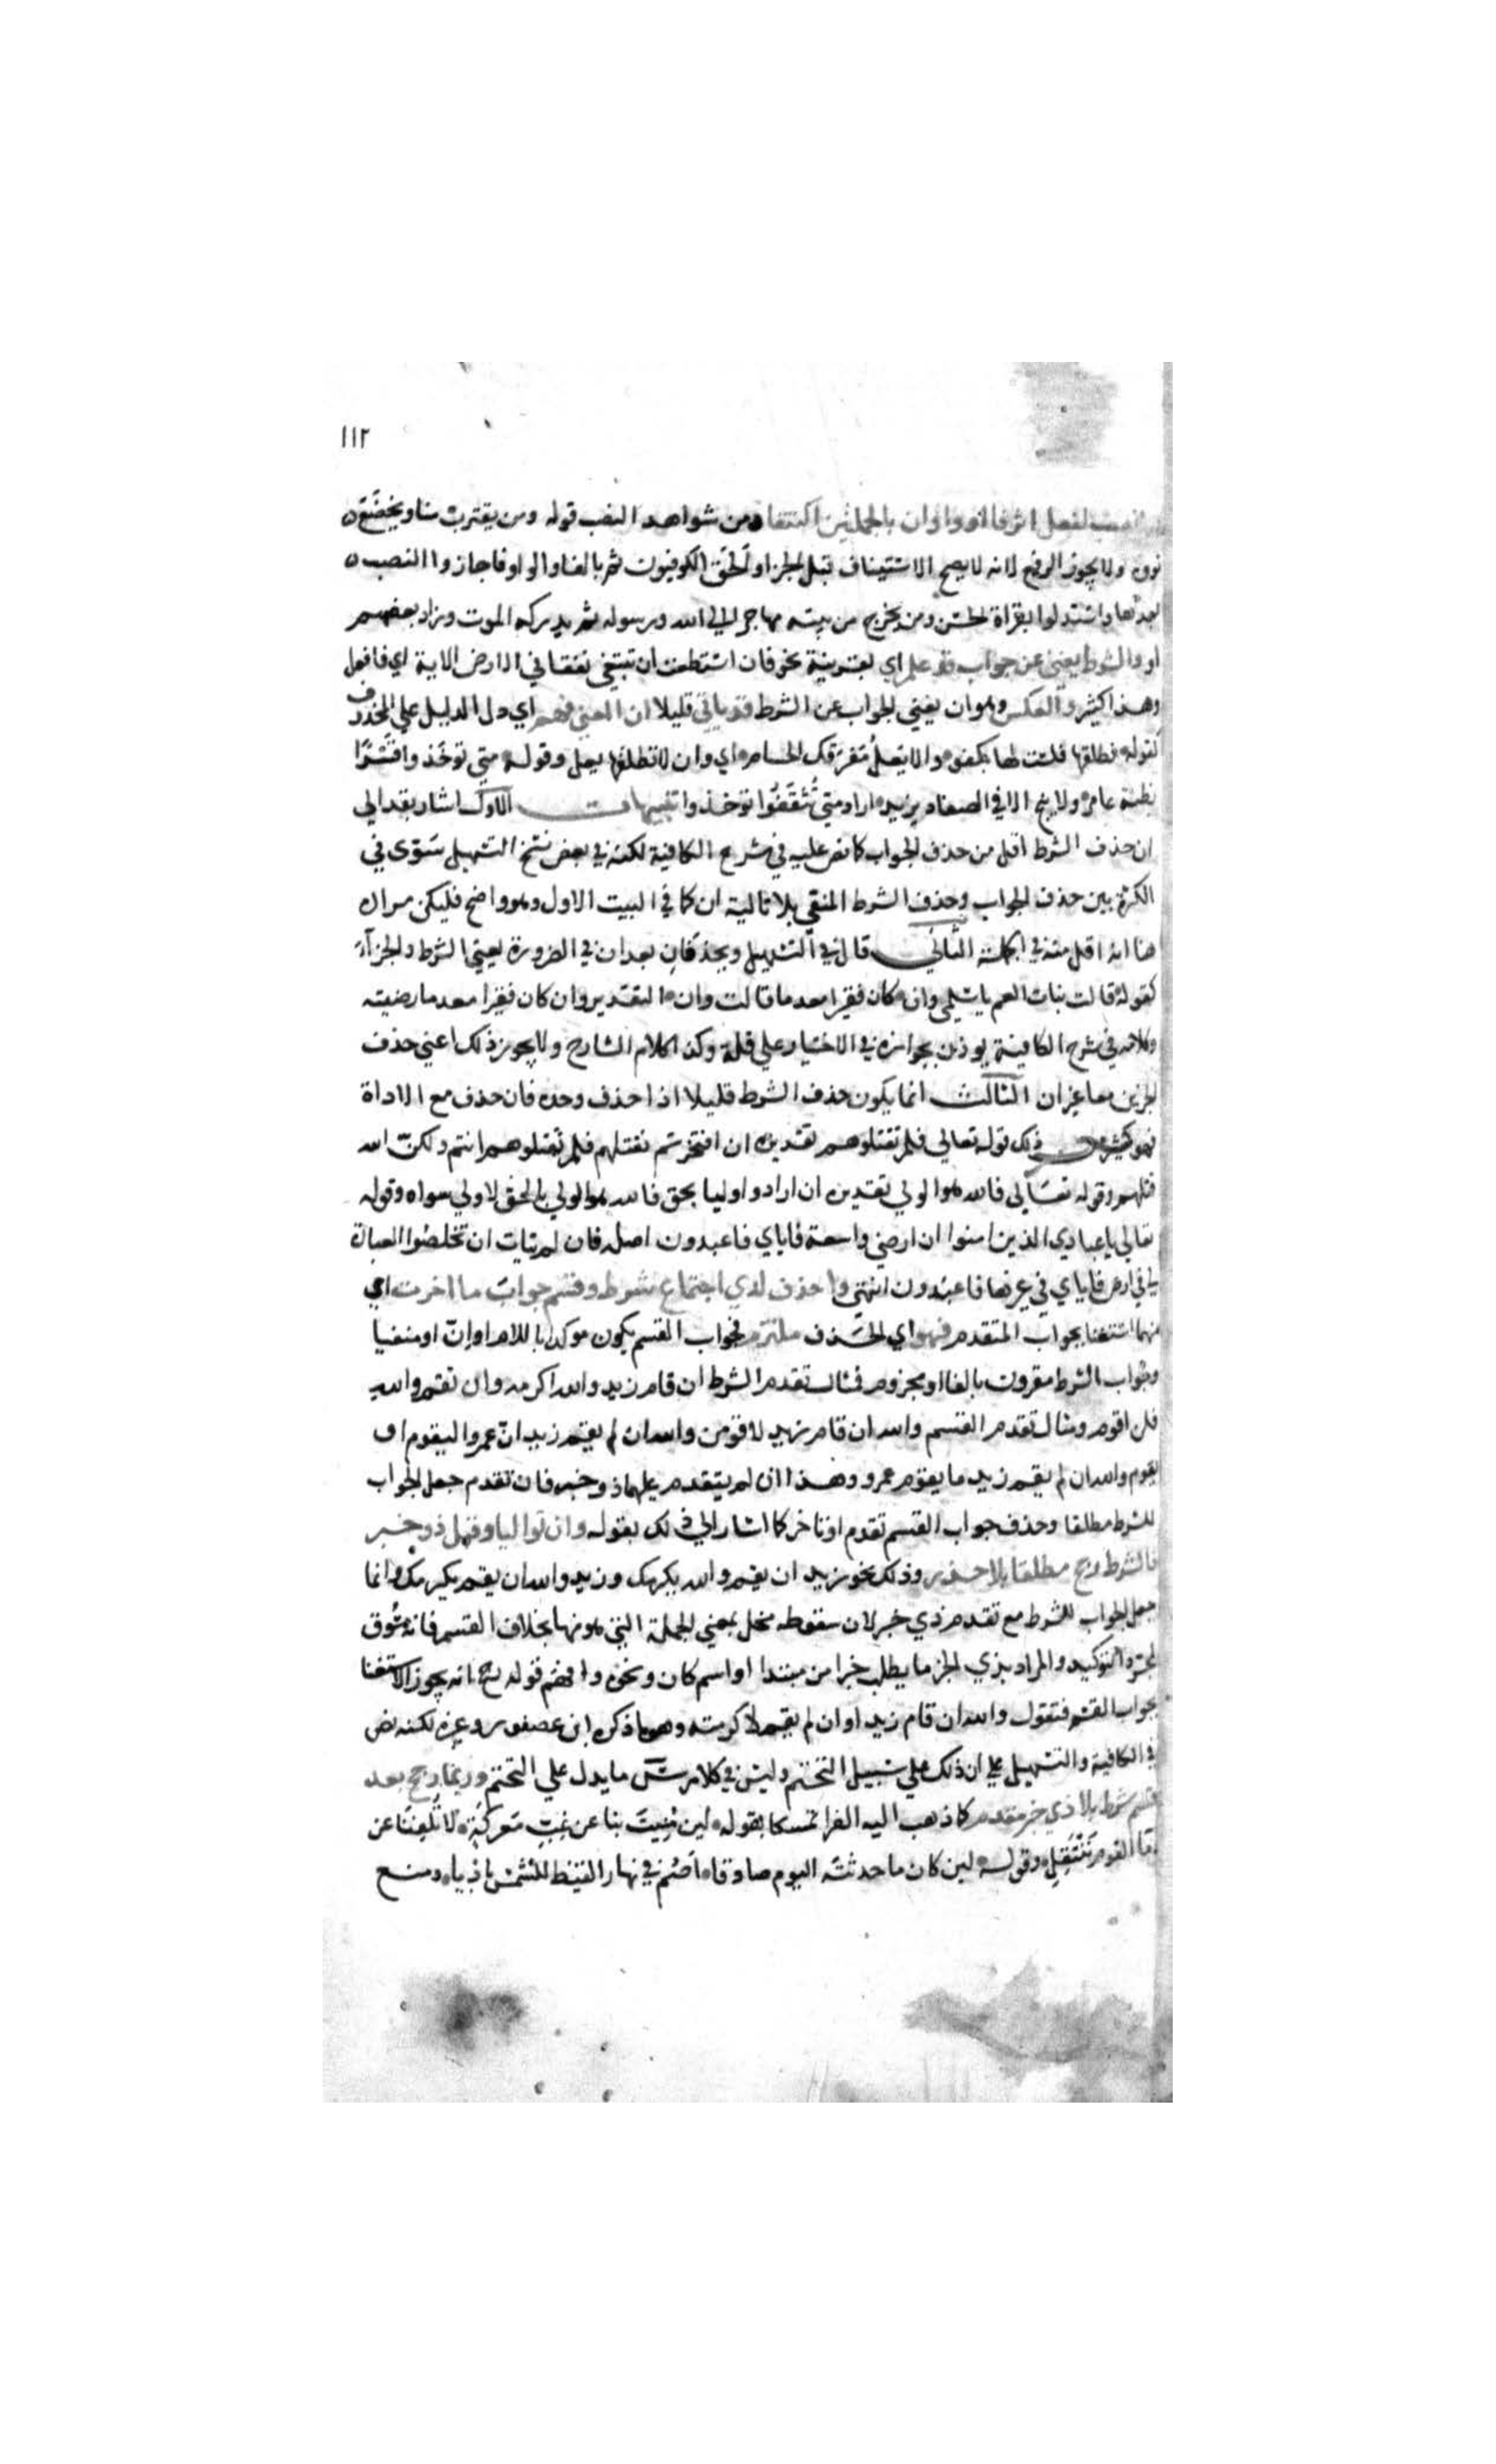 ١١٢
او نصب لفعل اثر فا او واو ان بالجملتين اكتنفا ومن شواهد النصب قوله ومن يقترب منا ويخضع ه
نووه ولا يجوز الرفع لانه لا يصح الاستيناف قبل الجزا وألحق الكوفيون ثم بالفا والواو فاجازوا النصب ه
بعدها واستدلوا بقراة الحسن ومن يخرج من بيته مهاجرا الي الله ورسوله ثم يدركه الموت وزاد بعضهم
او والشرط يغني عن جواب قد علم اي بقرينة نحو فان استطعت ان تبتغي نفقا في الارض الاية اي فافعل
وهذا كثير والعكس وهو ان يغني الجواب عن الشرط قد ياتي قليلا ان المعني فهم اي دل الدليل علي المحذوف
كقوله فطلقها فلست لها بكفوء والا يعل مفرقك الحسام اي وان لا تطلقها يعل وقوله متي توخذوا قسرًا
بظنة عامر ولا ينج الا في الصفاد يزيد اراد متي تثقفوا توخذوا تنبيهات الاول اشار بقد الي
ان حذف الشرط اقل من حذف الجواب كما نص عليه في شرح الكافية لكنه في بعض نسخ التسهيل سوّى في
الكثرة بين حذف الجواب وحذف الشرط المنفي بلا تالية ان كما في البيت الاول وهو واضح فليكن مراده
هنا انه اقل منه في الجملة الثاني قال في التسهيل ويحذفان بعد ان في الضرورة يعني الشرط والجزآء
كقوله قالت بنات العم يا سلمي وان كان فقيرا معدما قالت وان التقدير وان كان فقيرا معدما رضيته
وكلامه في شرح الكافية يوذن بجوازه في الاختيار علي قلة وكذا كلام الشارح ولا يجوز ذلك اعني حذف
الجزين معا غير ان الثالث انما يكون حذف الشرط قليلا اذا حذف وحده فان حذف مع الاداة
فهو كثير من ذلك قوله تعالي فلم تقتلوهم تقديره ان افتخرتم بقتلهم فلم تقتلوهم انتم ولكنّ الله
قتلهم وقوله تعالي فالله هو الولي تقديره ان ارادوا وليا بحق فالله هو الولي بالحق لا ولي سواه وقوله
تعالي يا عبادي الذين امنوا ان ارضي واسعة فاياي فاعبدون اصله فان لم يتات ان تخلصُوا العبادة
لي في ارض فاياي في غيرها فاعبدون انتهي واحذف لدي اجتماع شرط وقسم جواب ما اخرت اي
منهما استغنا بجواب المتقدم فهو اي الحذف ملتزم فجواب القسم يكون موكدا باللام او انّ او منفيا
وجواب الشرط مقرون بالفا او مجزوم فمثال تقدم الشرط ان قام زيد والله اكرمه وان تقم والله
فلن اقوم ومثال تقدم القسم والله ان قام زيد لاقومن والله ان لم يقم زيد انّ عمرا ليقوم او
يقوم والله ان لم يقم زيد ما يقوم عمرو وهذا ان لم يتقدم عليهما ذو خبر فان تقدم جعل الجواب
للشرط مطلقا وحذف جواب القسم تقدم او تاخر كما اشار الي ذلك بقوله وان تواليا وقبل ذو خبر
فالشرط رجح مطلقا بلا حذر وذلك نحو زيد ان يقم والله يكرمك وزيد والله ان يقم يكرمك وانما
جعل الجواب للشرط مع تقدم ذي خبر لان سقوطه مخل بمعني الجملة التي هو منها بخلاف القسم فانه مسُوق
لمجرد التوكيد والمراد بذي الخبر ما يطلب خبرا من مبتدا او اسم كان ونحوه وافهم قوله رجح انه يجوز الاستغنا
بجواب القسم فتقول والله ان قام زيد او ان لم يقم لاكرمته وهو ما ذكره ابن عصفور وغيره لكنه نص
في الكافية والتسهيل علي ان ذلك علي سبيل التحتم وليس في كلام س ما يدل علي التحتم وربما رجح بعد
قسم شرط بلا ذي خبر مقدم كما ذهب اليه الفرا تمسكا بقوله لين مُنِيتَ بنا عن غِبّ مَعركةٍ لا تُلفِنَا عن
دما القوم ننتفل وقوله لين كان ما حدثته اليوم صادقا اصُم في نهار القيظ للشمس باديا ومنع